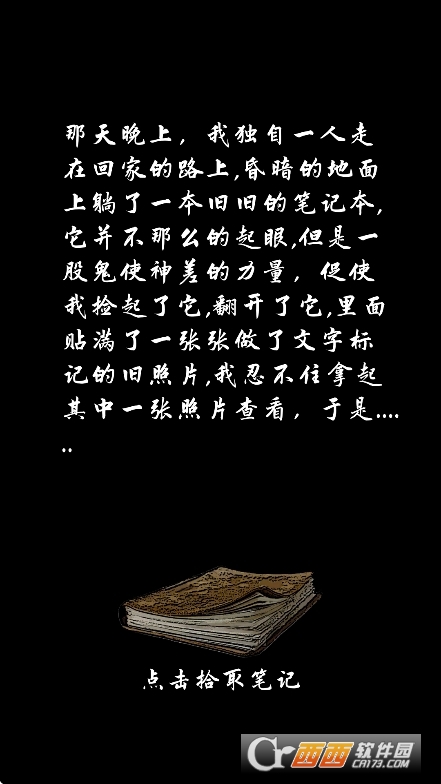 那天晚上，我独自一人走
在回家的路上,昏暗的地面
上躺了一本旧旧的笔记本,
它并不那么的起眼,但是一
股鬼使神差的力量，促使
我捡起了它,翻开了它,里面
贴满了一张张做了文字标
记的旧照片,我忍不住拿起
其中一张照片查看，于是....
..
点击拾取笔记
Cr西西软件园
CR173.COM